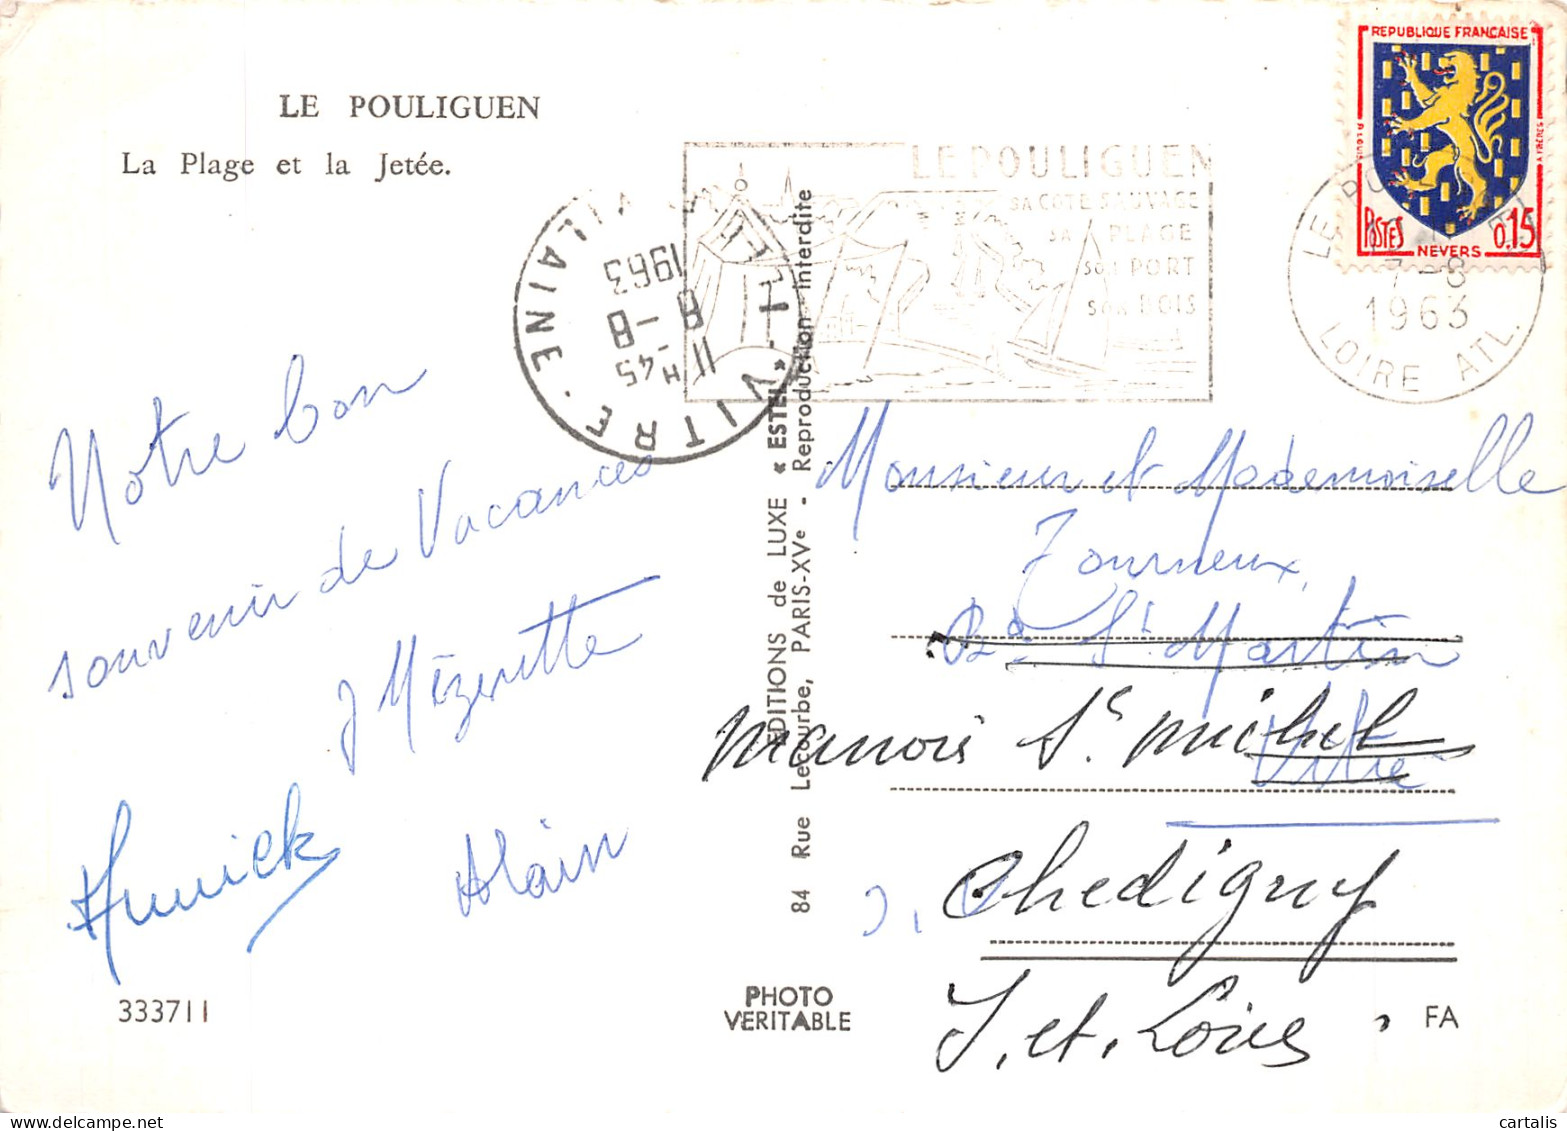 LE POULIGUEN
La Plage et la Jetée.
REPUBLIQUE FRANÇAISE
POSTES
0,15
NEVERS
LE POULIGUEN
SA COTE SAUVAGE
SA PLAGE
SON PORT
SON BOIS
7-8
1963
LOIRE ATL.
VITRE
VILAINE
11 H 45
8-8
1963
Notre bon
souvenir de Vacances
J Mézerette
Annick
Alain
333711
EDITIONS de LUXE « ESTEL » -
84 Rue Lecourbe, PARIS-XVe - Reproduction Interdite
PHOTO
VERITABLE
Monsieur et Mademoiselle
Tourneux
Bd St Martin
Vitré
Manoir St Michel
Chedigny
I. et Loire
FA
cartalis